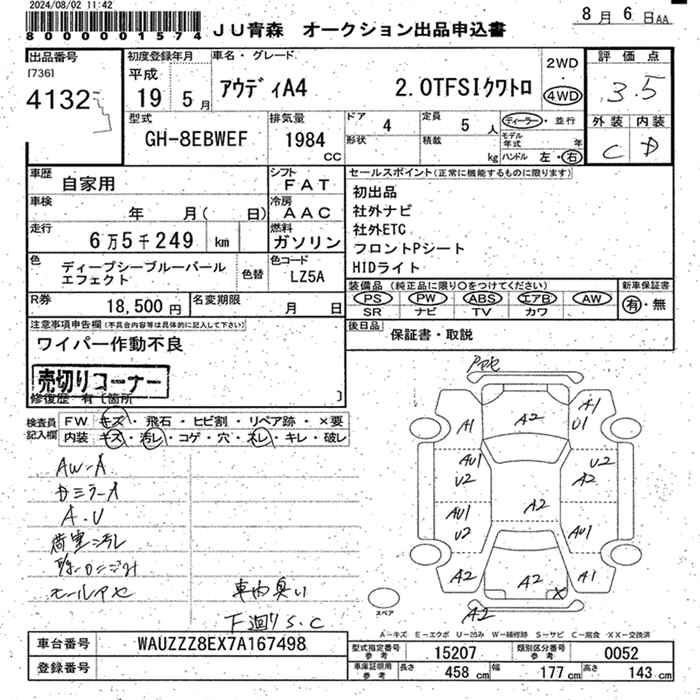 2024/08/02 11:42
8000001574
JU青森 オークション出品申込書
8月 6日AA
出品番号
[736]
4132
初度登録年月
平成
19 5月
車名・グレード
アウディA4 2.0TFSIクワトロ
2WD
・
4WD
評価点
3.5
外装 内装
C D
型式
GH-8EBWEF
排気量
1984
CC
ドア 4
形状
定員 5 人
積載 kg
ディーラー・並行
モデル年式 年
ハンドル 左・右
車歴 自家用
シフト FAT
車検 年 月( 日)
冷房 AAC
走行 6万5千249 km
燃料 ガソリン
色 ディープシーブルーパール
エフェクト
色替
色コード
LZ5A
R券 18,500 円
名変期限 月 日
セールスポイント(正常に機能するものに限ります)
初出品
社外ナビ
社外ETC
フロントPシート
HIDライト
装備品 (純正品に限り○をつけてください)
PS・PW・ABS・エアB・AW
SR ナビ TV カワ
新車保証書
有・無
後日品 保証書・取説
注意事項申告欄(不具合内容等は具体的に記入して下さい)
ワイパー作動不良
売切りコーナー
修復歴 有〔箇所 〕
検査員
記入欄
FW キズ・飛石・ヒビ割・リペア跡・×要
内装 キズ・汚レ・コゲ・穴・スレ・キレ・破レ
AW-A
ドミラーA
A.U
荷室汚レ
モールアセ
車内臭い
下廻りS.C
アセ
A2
A1
A1
U1
AU1
U2
U2
A2
A2
AU1
U2
AU1
A2
A2
X
A1
A2
スペア
A-キズ E-エクボ U-凹み W-補修跡 S-サビ C-腐食 XX-交換済
車台番号 WAUZZZ8EX7A167498
登録番号
型式指定番号
参考
15207
類別区分番号
参考
0052
車庫証明用
参考
長さ 458 cm
幅 177 cm
高さ 143 cm